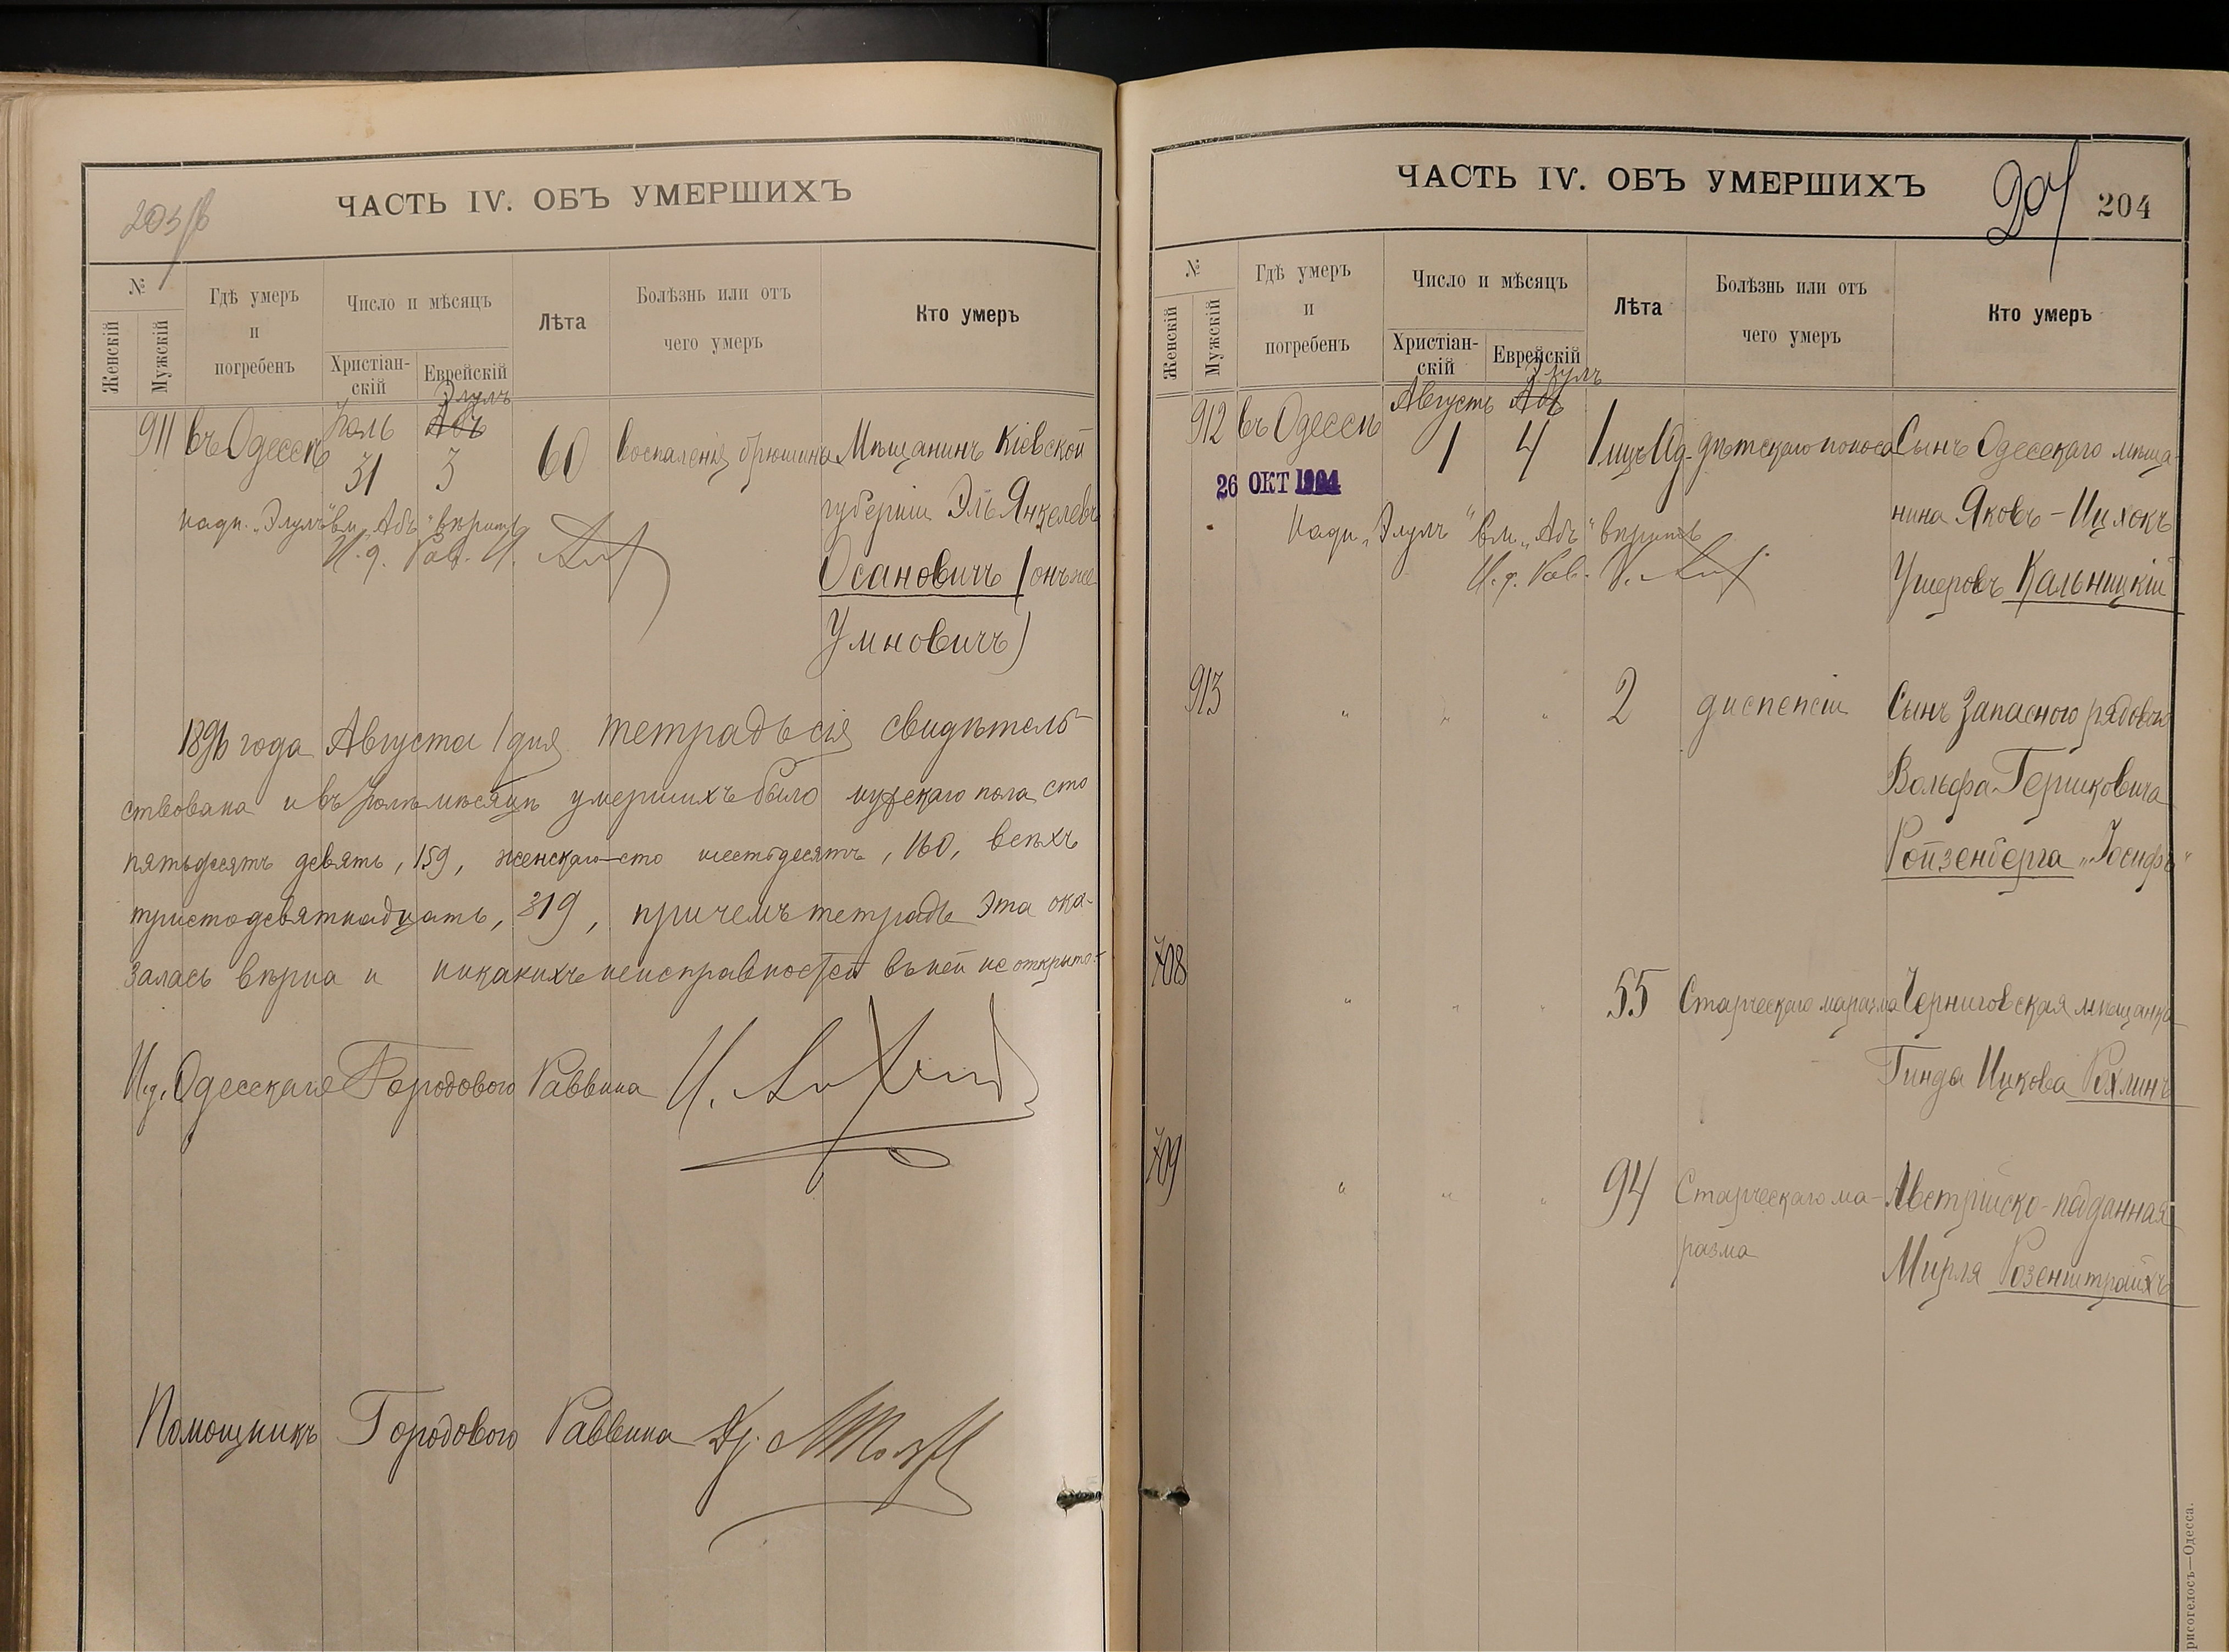 203/б
ЧАСТЬ IV. ОБЪ УМЕРШИХЪ
№
Женскій
Мужскій
Гдѣ умеръ
и
погребенъ
Число и мѣсяцъ
Христіан-
скій
Еврейскій
Лѣта
Болѣзнь или отъ
чего умеръ
Кто умеръ
Элулъ
911 въ Одессѣ Іюль Абъ
31 3 60 воспаленія брюшины Мѣщанинъ Кіевской
губерніи Эль Янкелевъ
надп. „Элулъ" вм. „Абъ" вѣрить
И. д. Рав. И.
Осановичъ (онъ же
Умновичъ)
1896 года Августа 1 дня тетрадь сія свидѣтель-
ствована и въ Іюлѣ мѣсяцѣ умершихъ было мужскаго пола сто
пятьдесятъ девять, 159, женскаго—сто шестьдесятъ, 160, всѣхъ
тристо девятнадцать, 319, причемъ тетрадь эта ока-
залась вѣрна и никакихъ неисправностей въ ней не открыто.
И.д. Одесскаго Городового Раввина И.
Помощникъ Городового Раввина Др.
ЧАСТЬ IV. ОБЪ УМЕРШИХЪ
204
204
№
Женскій
Мужскій
Гдѣ умеръ
и
погребенъ
Число и мѣсяцъ
Христіан-
скій
Еврейскій
Лѣта
Болѣзнь или отъ
чего умеръ
Кто умеръ
Элулъ
912 въ Одессѣ Августъ Абъ
1 4 1 мцъ 10 д. дѣтскаго поноса Сынъ Одесскаго мѣща-
26 ОКТ 1904
нина Яковъ-Ицхокъ
надп. „Элулъ" вм. „Абъ" вѣрить
И. д. Рав. И.
Ушеровъ Кальницкій
913 " " " 2 диспепсіи Сынъ Запасного рядового
Вольфа Гершковича
Ройзенберга „Іосифъ"
708 " " " 55 Старческаго маразма Черниговская мѣщанка
Гинда Ицкова Рохлинъ
709 " " " 94 Старческаго ма- Австрійско-подданная
разма
Мирля Розенштрайхъ
рисогелосъ—Одесса.